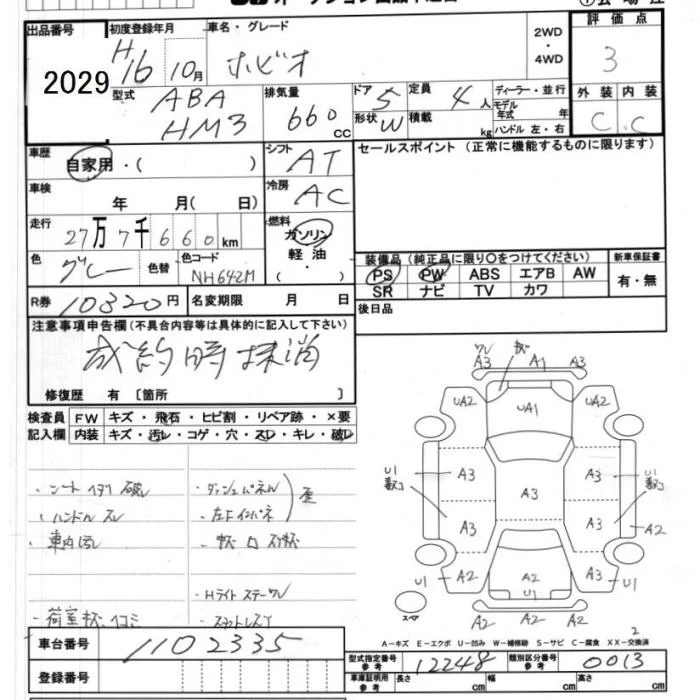 出品番号 初度登録年月 車名・グレード 2WD・4WD 評価点
2029 H16 10月 ホビオ 3
型式 ABA HM3 排気量 660 cc ドア 5 定員 4人 ディーラー・並行
形状 W 積載 kg モデル年式 年 ハンドル 左・右
外装 内装
C C
車歴 自家用・( ) シフト AT セールスポイント (正常に機能するものに限ります)
車検 年 月( 日) 冷房 AC
走行 27万7千660km 燃料 ガソリン 軽油 ( ・ )
色 グレー 色替 色コード NH642M
装備品 (純正品に限り○をつけてください) 新車保証書
PS PW ABS エアB AW 有・無
SR ナビ TV カワ
R券 10320円 名変期限 月 日 後日品
注意事項申告欄(不具合内容等は具体的に記入して下さい)
成約時抹消
修復歴 有 [箇所 ]
検査員 FW キズ・飛石・ヒビ割・リペア跡・×要
記入欄 内装 キズ・汚レ・コゲ・穴・スレ・キレ・破レ
・シートイタリ破レ ・ダッシュパネル
・ハンドルスレ ・左下インパネ
・車内汚レ
・Hライトステー
車台番号 1102335
登録番号
A3 A1 A3
UA2 UA1 UA2
U1 A3 A3 A3 U1
A3 A3 A2
U1 A2 A2 A3 U1
U1
A2 A2 A2
スペア
2
A-キズ E-エクボ U-凹み W-補修跡 S-サビ C-腐食 XX-交換済
型式指定番号 参考 12248 類別区分番号 参考 0013
車庫証明用 参考 長さ cm 幅 cm 高さ cm